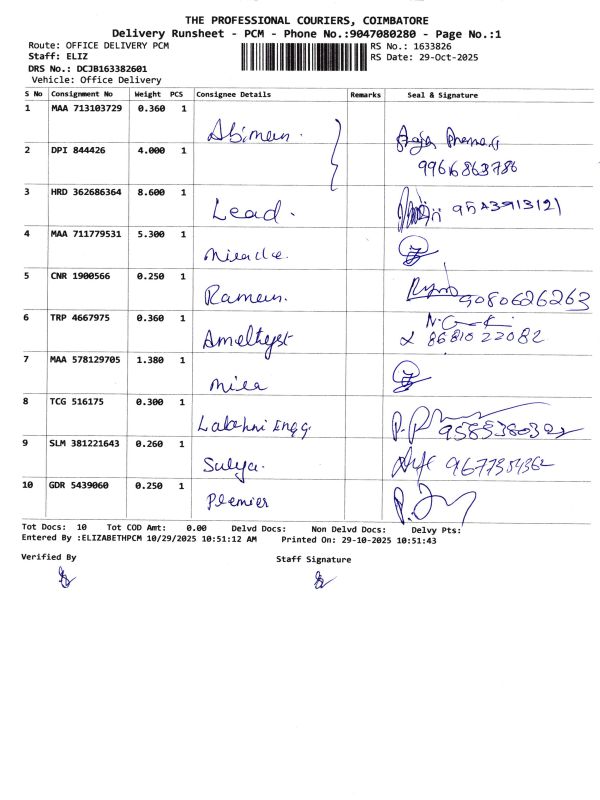 THE PROFESSIONAL COURIERS, COIMBATORE
Delivery Runsheet - PCM - Phone No.:9047080280 - Page No.:1
Route: OFFICE DELIVERY PCM RS No.: 1633826
Staff: ELIZ RS Date: 29-Oct-2025
DRS No.: DCJB163382601
Vehicle: Office Delivery
S No Consignment No Weight PCS Consignee Details Remarks Seal & Signature
1 MAA 713103729 0.360 1
2 DPI 844426 4.000 1 99616863786
3 HRD 362686364 8.600 1 Lead.
4 MAA 711779531 5.300 1
5 CNR 1900566 0.250 1 9080626263
6 TRP 4667975 0.360 1 Amelthyst 8681022082
7 MAA 578129705 1.380 1
8 TCG 516175 0.300 1 Lakshni Engg.
9 SLM 381221643 0.260 1
10 GDR 5439060 0.250 1 Plemier
Tot Docs: 10 Tot COD Amt: 0.00 Delvd Docs: Non Delvd Docs: Delvy Pts:
Entered By :ELIZABETHPCM 10/29/2025 10:51:12 AM Printed On: 29-10-2025 10:51:43
Verified By Staff Signature